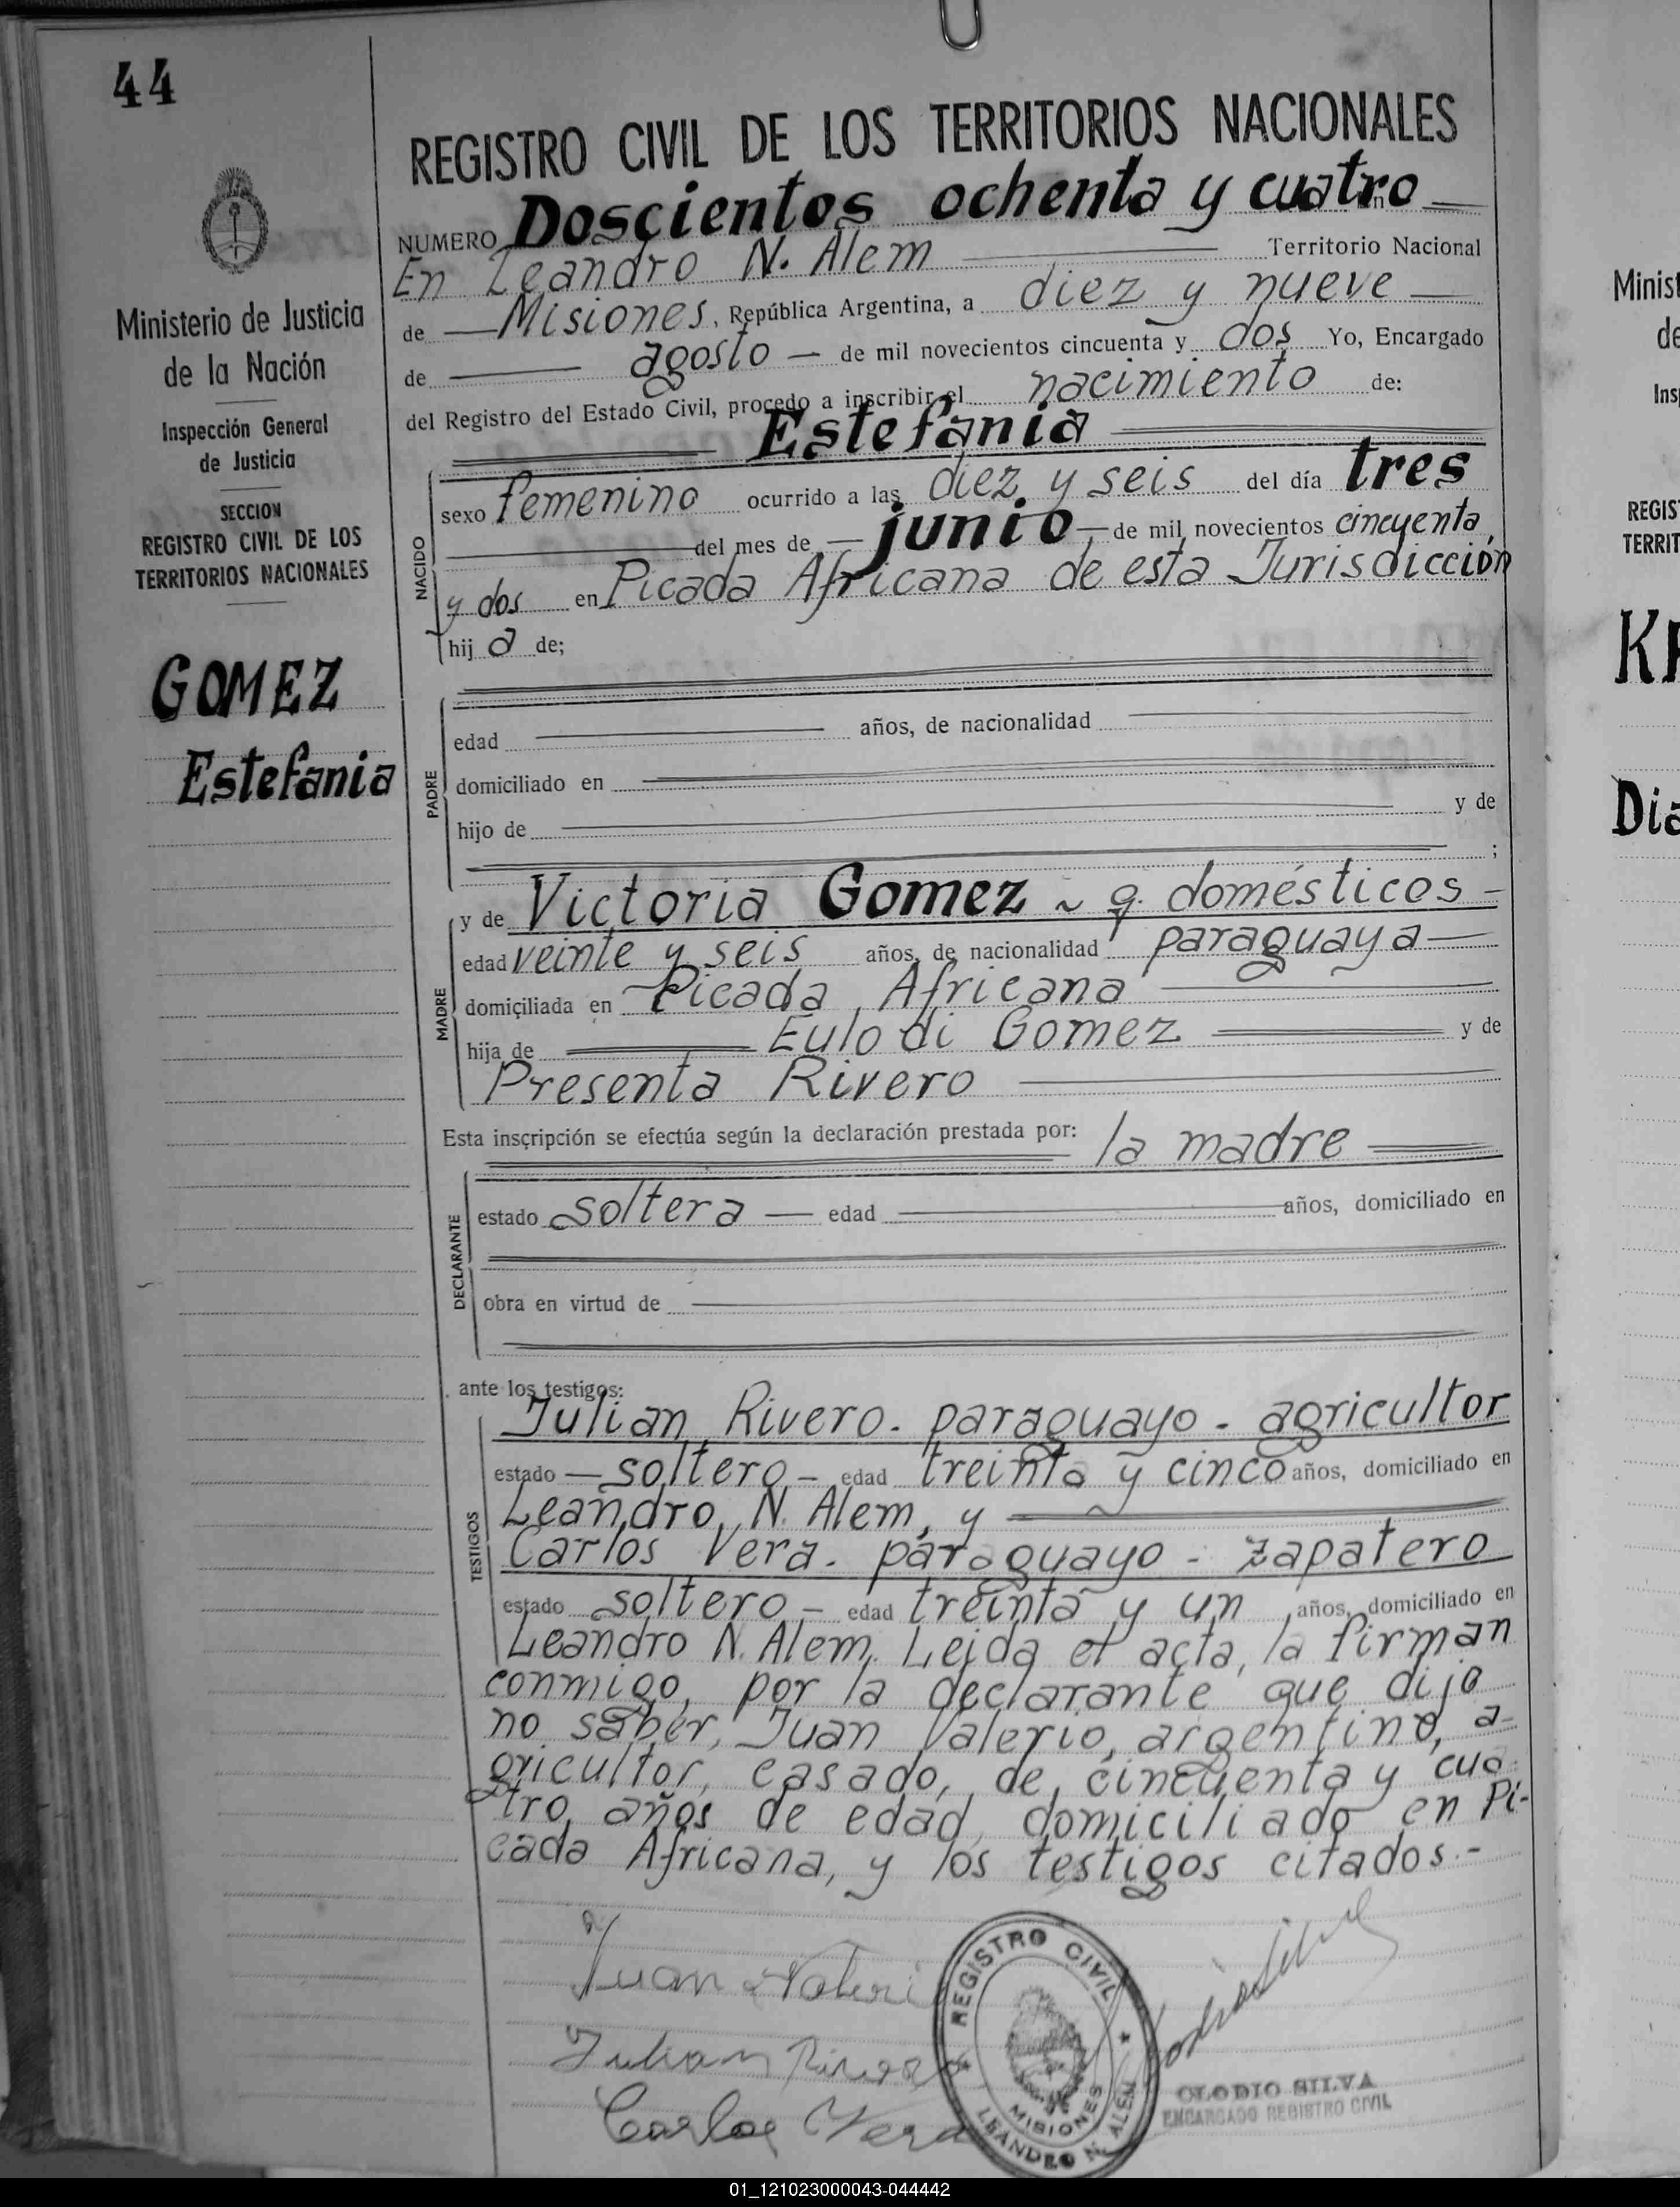 44
REGISTRO CIVIL DE LOS TERRITORIOS NACIONALES
NUMERO Doscientos ochenta y cuatro
En Leandro N. Alem Territorio Nacional
de Misiones, República Argentina, a diez y nueve
de agosto de mil novecientos cincuenta y dos Yo, Encargado
del Registro del Estado Civil, procedo a inscribir el nacimiento de:
Estefania
sexo femenino ocurrido a las diez y seis del día tres
del mes de junio de mil novecientos cincuenta
y dos en Picada Africana de esta Jurisdicción
hija de;
NACIDO
edad años, de nacionalidad
domiciliado en
hijo de y de
;
PADRE
y de Victoria Gomez ~ q. domésticos -
edad veinte y seis años, de nacionalidad paraguaya
domiciliada en Picada Africana
hija de Eulo di Gomez y de
Presenta Rivero
MADRE
Esta inscripción se efectúa según la declaración prestada por: la madre
estado soltera edad años, domiciliado en
obra en virtud de
DECLARANTE
ante los testigos:
Julian Rivero. paraguayo - agricultor
estado soltero - edad treinta y cinco años, domiciliado en
Leandro N. Alem, y
Carlos Vera. paraguayo - zapatero
estado soltero - edad treinta y un años, domiciliado en
TESTIGOS
Leandro N. Alem. Leida el acta, la firman
conmigo, por la declarante que dijo
no saber, Juan Valerio, argentino, a-
gricultor, casado, de cincuenta y cua-
tro años de edad, domiciliado en Pi-
cada Africana, y los testigos citados.-
Juan Valeri
Julian Rivero
Carlos Vera
REGISTRO CIVIL
MISIONES
LEANDRO N. ALEM
CLODIO SILVA
ENCARGADO REGISTRO CIVIL
Ministerio de Justicia
de la Nación
Inspección General
de Justicia
SECCION
REGISTRO CIVIL DE LOS
TERRITORIOS NACIONALES
GOMEZ
Estefania
Minist
de
Ins
REGIS
TERRIT
Dia
01_121023000043-044442